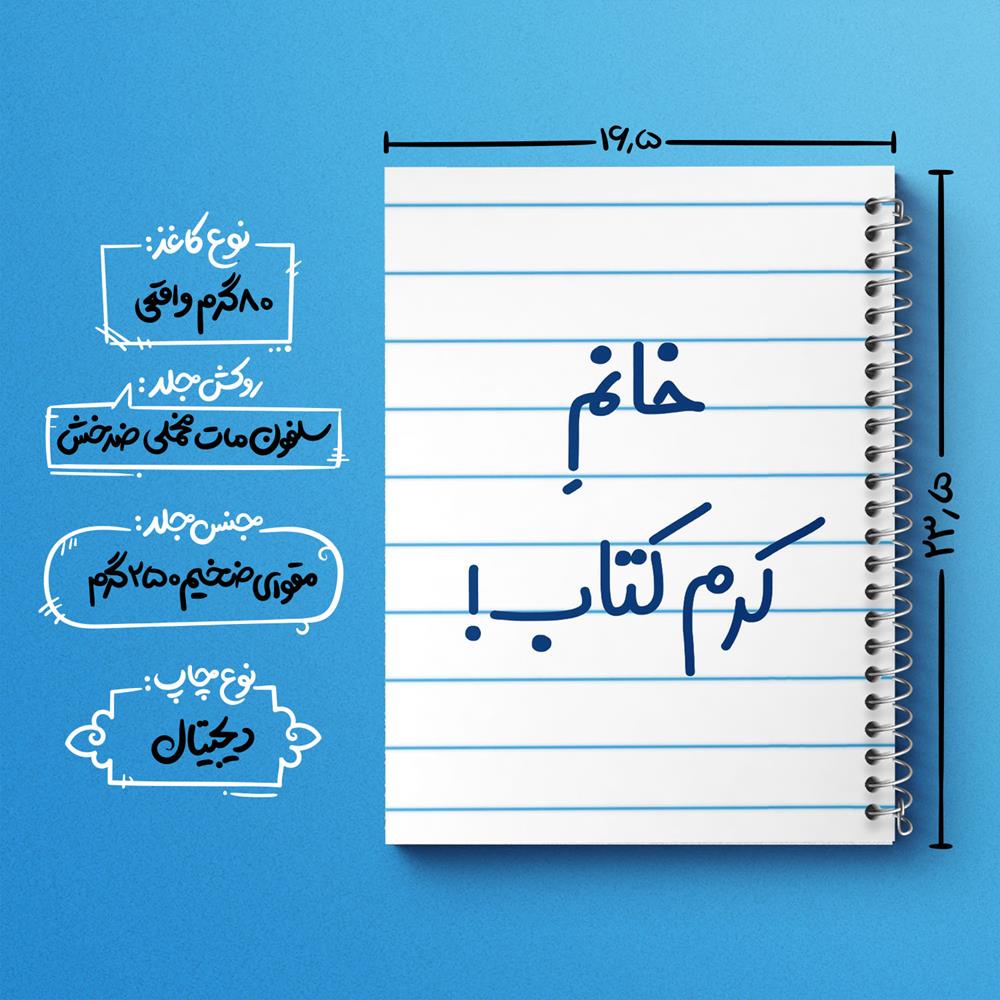 ۱۶,۵
۲۳,۵
خانمِ
کرم کتاب!
نوع کاغذ:
۸۰گرم واقعی
روکش جلد:
سلفون مات مخملی ضدخش
جنس جلد:
مقوای ضخیم ۲۵۰گرم
نوع چاپ:
دیجیتال